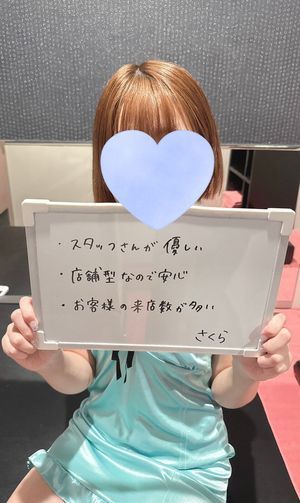 ・スタッフさんが優しい
・店舗型なので安心
・お客様の来店数が多い
さくら